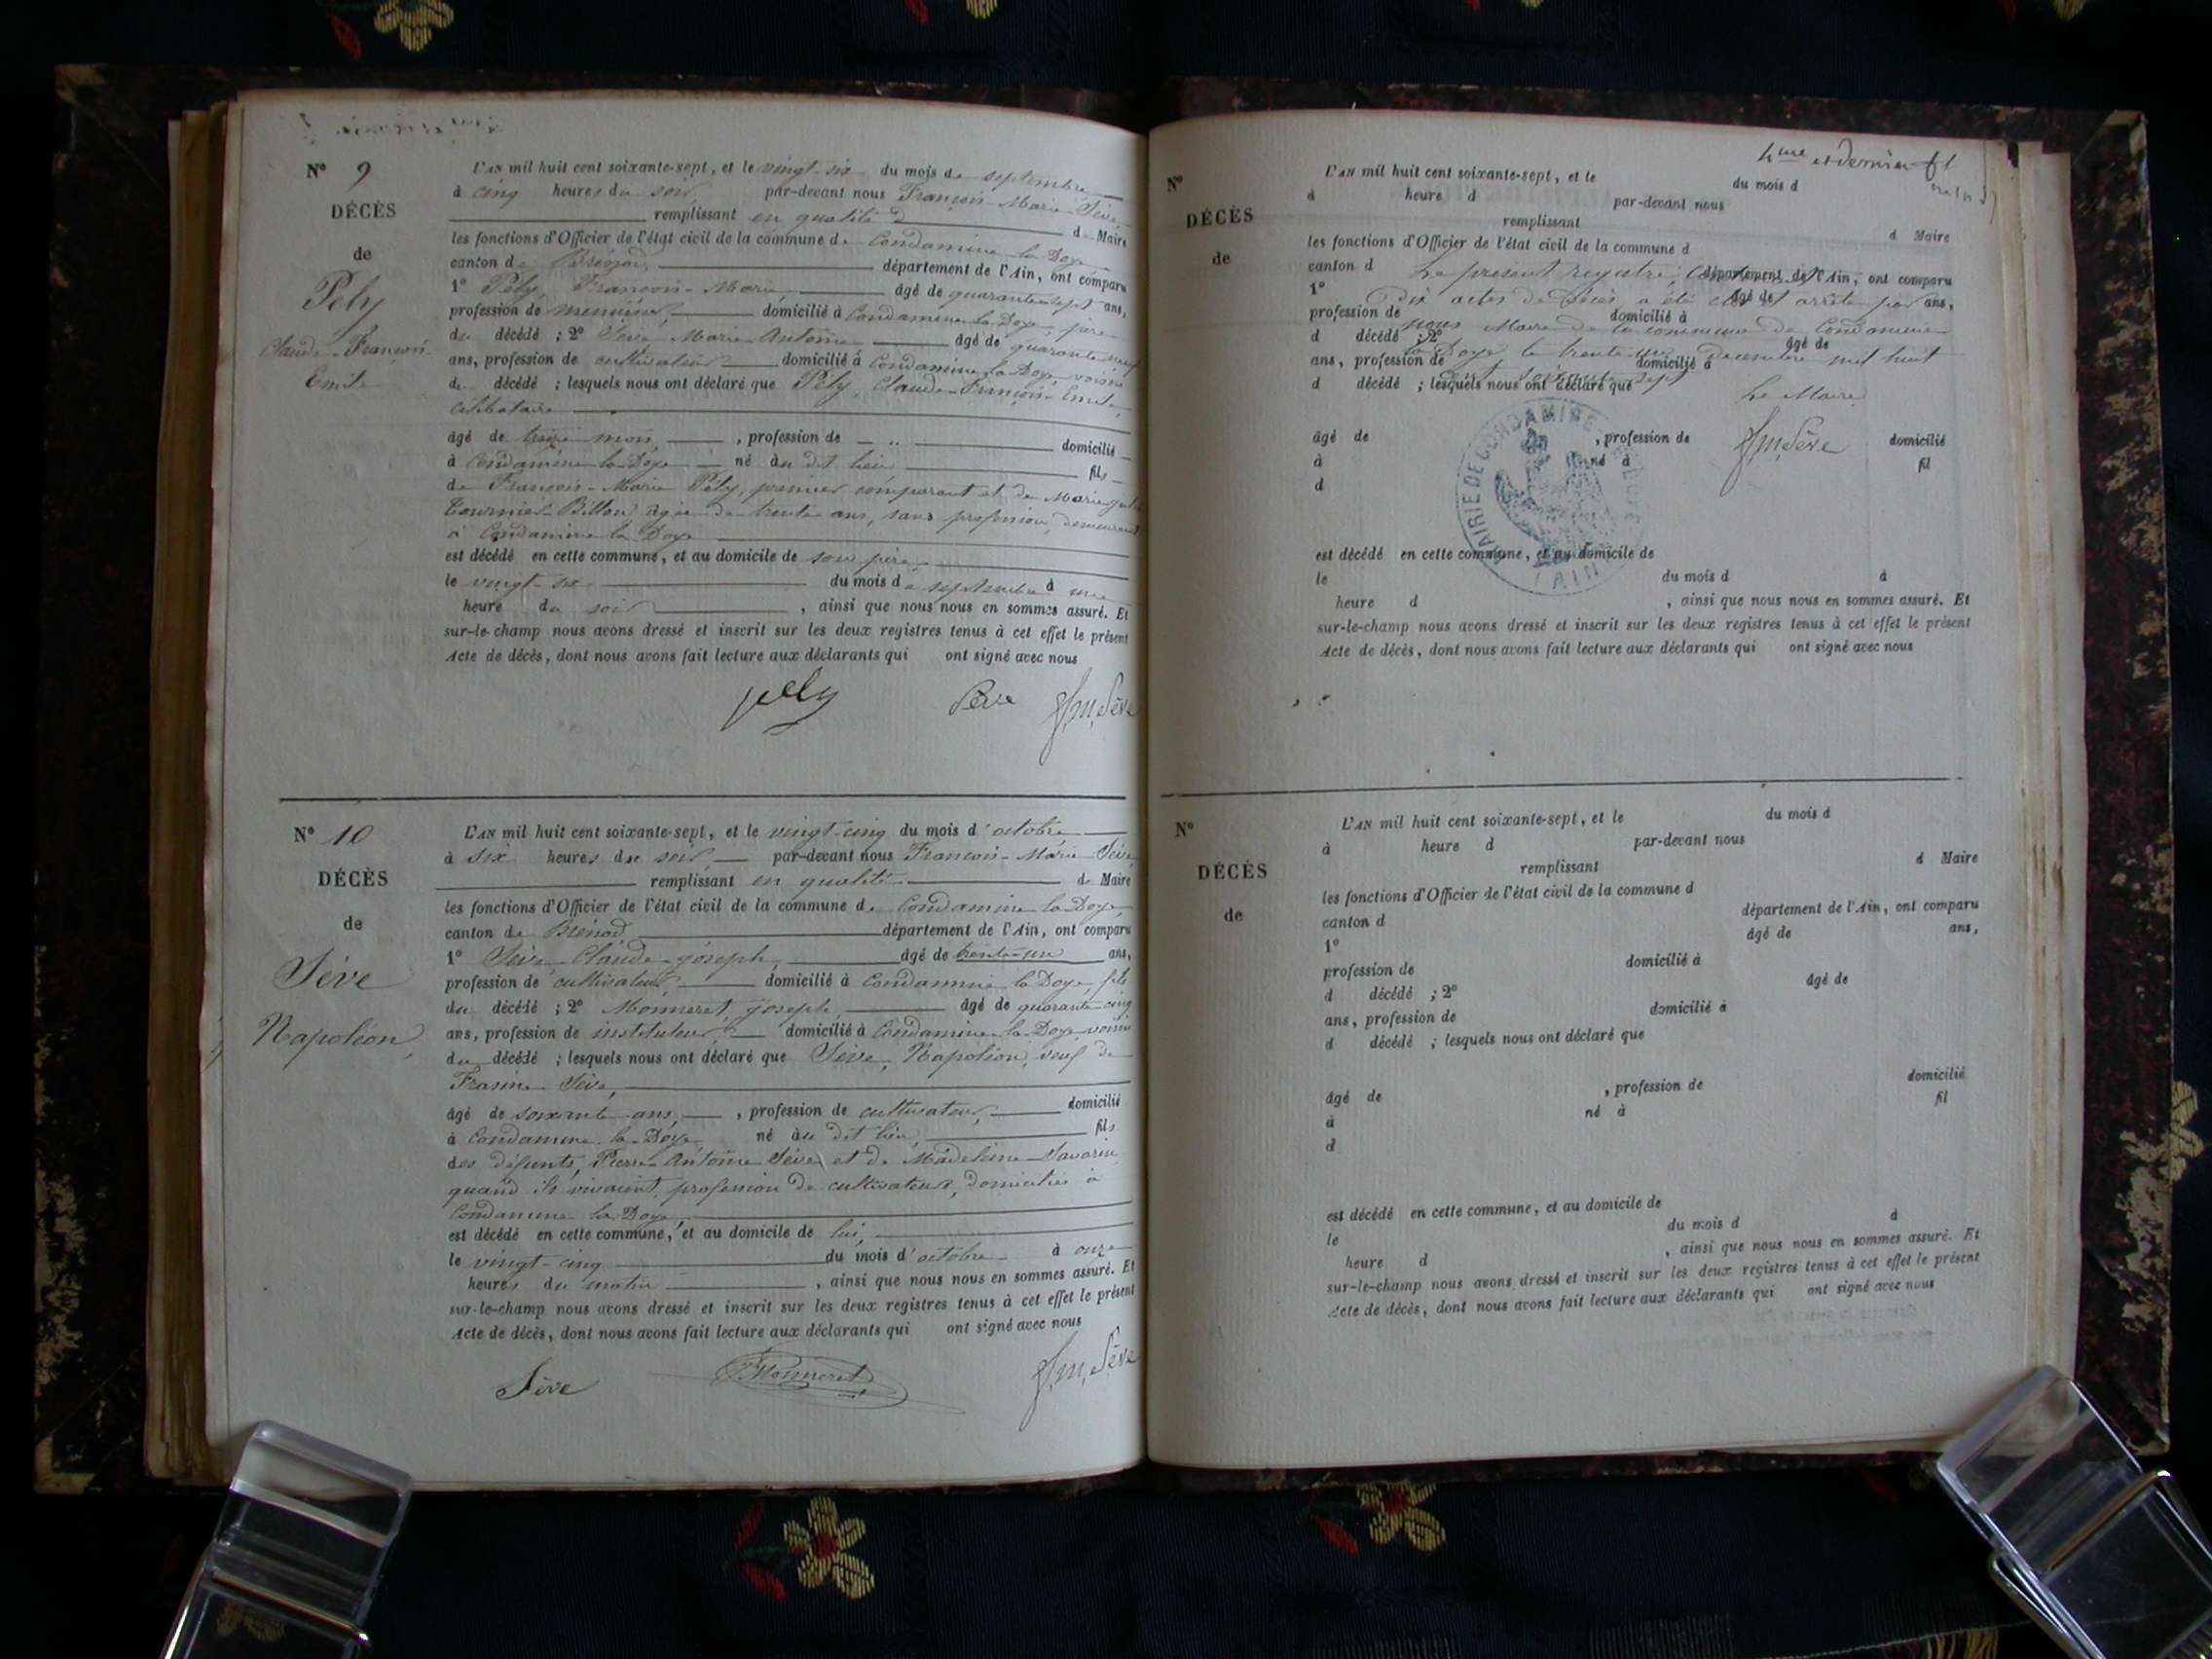 N° 9
DÉCÈS
de
Pély
Claude-François
Emile
L'AN mil huit cent soixante-sept, et le vingt-six du mois de septembre
à cinq heures du soir, par-devant nous François-Marie Sève
remplissant en qualité d de Maire
les fonctions d'Officier de l'état civil de la commune de Condamine la Doye
canton de Brénod, département de l'Ain, ont comparu
1° Pély, François-Marie âgé de quarante-sept ans,
profession de menuisier, domicilié à Condamine la Doye, père
du décédé ; 2° Sève Marie Antoine âgé de quarante neuf
ans, profession de cultivateur domicilié à Condamine la Doye, voisin
du décédé ; lesquels nous ont déclaré que Pély, Claude-François-Emile,
célibataire
âgé de treize mois, , profession de domicilié
à Condamine la Doye né au dit lieu fils
de François-Marie Pély, premier comparant et de Marie
Tournier-Billon âgée de trente ans, sans profession, demeurant
à Condamine la Doye
est décédé en cette commune, et au domicile de son père
le vingt-six du mois de septembre à une
heure du soir , ainsi que nous nous en sommes assuré. Et
sur-le-champ nous avons dressé et inscrit sur les deux registres tenus à cet effet le présent
Acte de décès, dont nous avons fait lecture aux déclarants qui ont signé avec nous
pély Sève f.m. Sève
N° 10
DÉCÈS
de
Sève
Napoléon,
L'AN mil huit cent soixante-sept, et le vingt-cinq du mois d'octobre
à six heures du soir, par-devant nous François-Marie Sève
remplissant en qualité de Maire
les fonctions d'Officier de l'état civil de la commune de Condamine la Doye,
canton de Brénod département de l'Ain, ont comparu
1° Sève Claude-joseph, âgé de trente-un ans,
profession de cultivateur, domicilié à Condamine la Doye, fils
du décédé ; 2° Monneret, joseph, âgé de quarante-cinq
ans, profession de instituteur, domicilié à Condamine la Doye, voisin
du décédé ; lesquels nous ont déclaré que Sève, Napoléon, veuf de
Frasine Sève,
âgé de soixante ans, , profession de cultivateur, domicilié
à Condamine la Doye, né au dit lieu, fils
des défunts, Pierre-Antoine Sève et de Madeleine Savarin
quand ils vivaient, profession de cultivateurs, domiciliés à
Condamine la Doye
est décédé en cette commune, et au domicile de lui,
le vingt-cinq du mois d'octobre à onze
heures du matin , ainsi que nous nous en sommes assuré. Et
sur-le-champ nous avons dressé et inscrit sur les deux registres tenus à cet effet le présent
Acte de décès, dont nous avons fait lecture aux déclarants qui ont signé avec nous
Sève Monneret f.m. Sève
4me et dernier ft
N°
DÉCÈS
de
L'AN mil huit cent soixante-sept, et le du mois d
à heure d par-devant nous
remplissant d Maire
les fonctions d'Officier de l'état civil de la commune d
canton d département de l'Ain, ont comparu
Le présent registre,
1° âgé de ans,
Dix actes de décès, a été clos et arrêté par
profession de domicilié à
nous Maire de la commune de Condamine
d décédé ; 2° âgé de
la Doye le trente un décembre mil huit
ans, profession de domicilié à
cent soixante-sept
d décédé ; lesquels nous ont déclaré que
Le Maire
f.m. Sève
MAIRIE DE CONDAMINE LA DOYE
(AIN)
âgé de , profession de domicilié
à né à fil
d
est décédé en cette commune, et au domicile de
le du mois d à
heure d , ainsi que nous nous en sommes assuré. Et
sur-le-champ nous avons dressé et inscrit sur les deux registres tenus à cet effet le présent
Acte de décès, dont nous avons fait lecture aux déclarants qui ont signé avec nous
N°
DÉCÈS
de
L'AN mil huit cent soixante-sept, et le du mois d
à heure d par-devant nous
remplissant d Maire
les fonctions d'Officier de l'état civil de la commune d
canton d département de l'Ain, ont comparu
1° âgé de ans,
profession de domicilié à
d décédé ; 2° âgé de
ans, profession de domicilié à
d décédé ; lesquels nous ont déclaré que
âgé de , profession de domicilié
à né à fil
d
est décédé en cette commune, et au domicile de
le du mois d à
heure d , ainsi que nous nous en sommes assuré. Et
sur-le-champ nous avons dressé et inscrit sur les deux registres tenus à cet effet le présent
Acte de décès, dont nous avons fait lecture aux déclarants qui ont signé avec nous